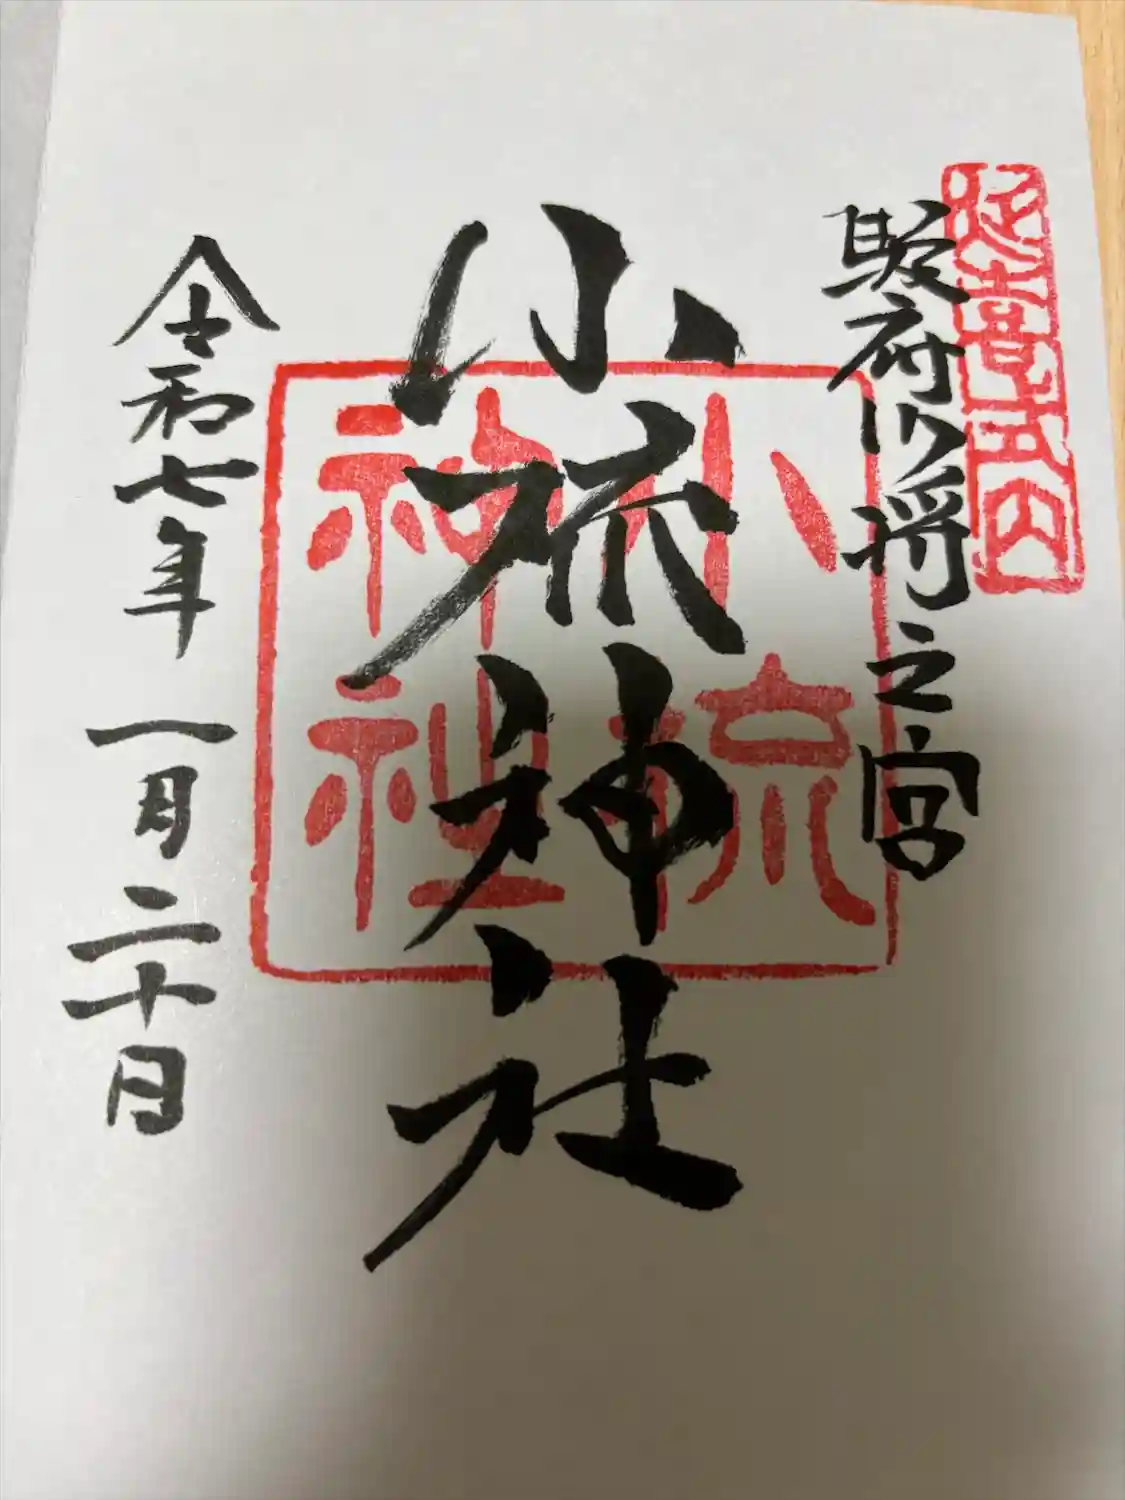 延喜式内
駿府少将之宮
小梳神社
小梳
神社
令和七年一月二十日